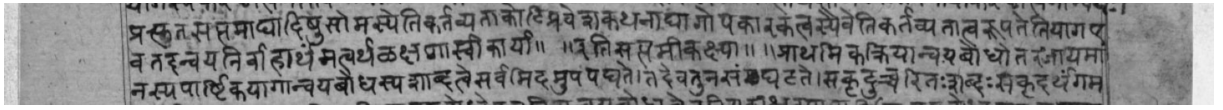 प्रस्तुतसप्तमाद्यादिषुसोमस्येतिकर्तव्यताकोटिप्रवेशकथनाद्यागोपकारकत्वस्यैवेतिकर्तव्यतात्वरूपतेतियागए
वतदन्वयनिर्वाहार्थंमत्वर्थलक्षणास्वीकार्या॥ ॥इतिसप्तमीकक्ष्या॥ ॥प्राथमिकक्रियान्वयबोधोत्तरजायमा
नस्यपार्ष्टिकयागान्वयबोधस्यशाब्दत्वेसर्वमिदमुपपद्यते।तदेवतुनसंघटते।सकृदुच्चरितःशब्दःसकृदर्थंगम